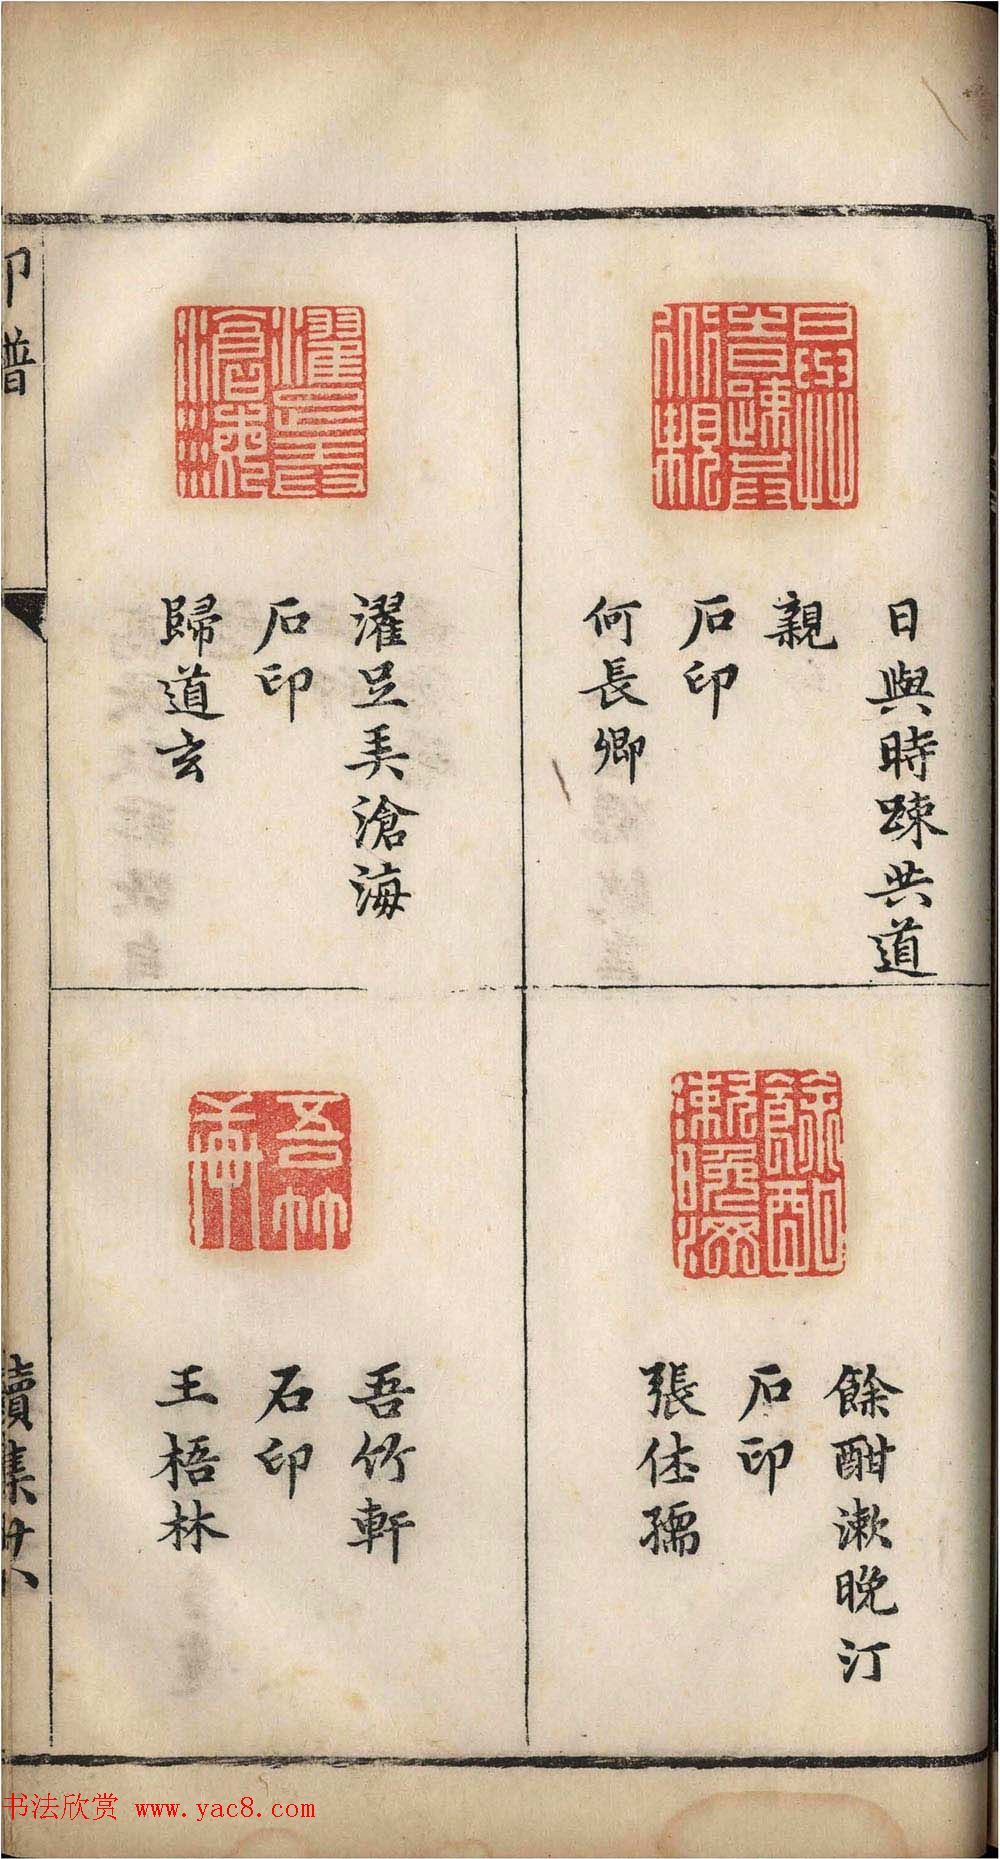 日與時踈共道
親
石印
何長卿
餘酣漱晚汀
石印
張仕孺
濯足弄滄海
石印
歸道玄
吾竹軒
石印
王梧林
印譜
續集
书法欣赏 www.yac8.com